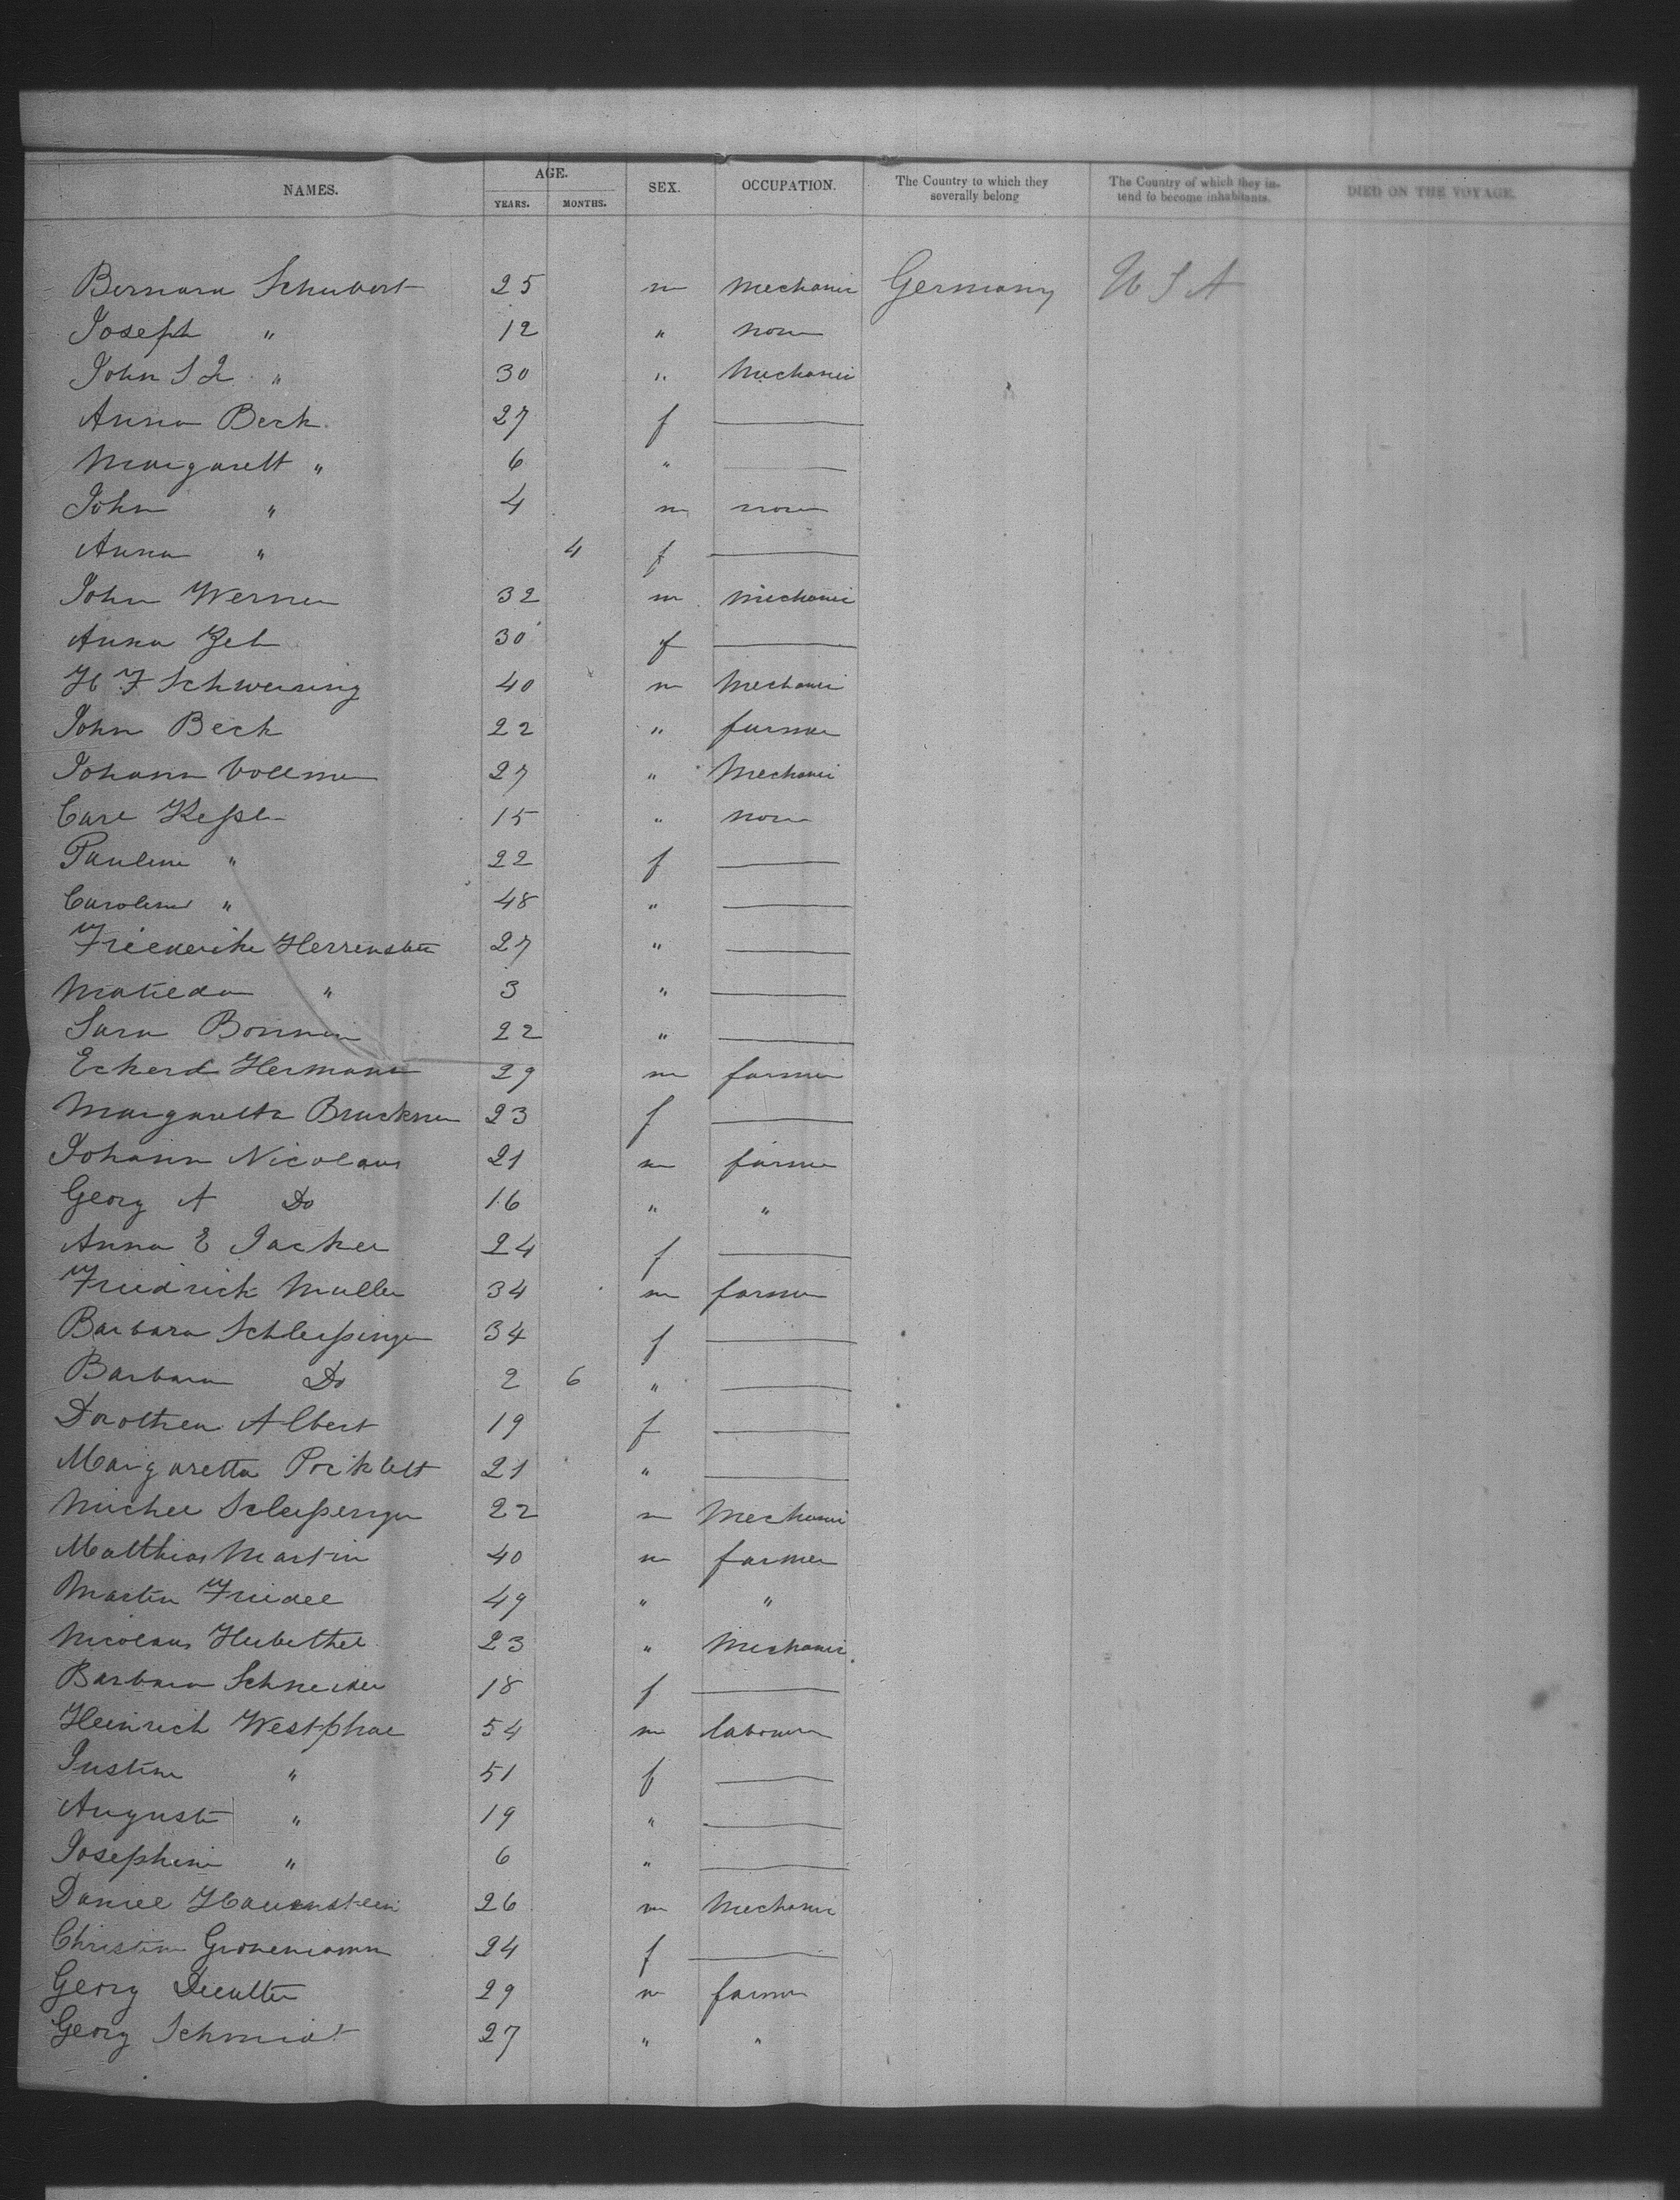 NAMES. AGE. YEARS. MONTHS. SEX. OCCUPATION. The Country to which they severally belong The Country of which they intend to become inhabitants. DIED ON THE VOYAGE.
Bernard Schubert 25 m Mechanic Germany U S A
Joseph " 12 " none
John S L " 30 " Mechanic
Anna Beck 27 f
Margarett " 6 "
John " 4 m none
Anna " 4 f
John Werner 32 m Mechanic
Anna Zeh 30 f
H F Schwering 40 m Mechanic
John Beck 22 " farmer
Johann Vollmer 27 " Mechanic
Carl Kessler 15 " none
Pauline " 22 f
Caroline " 48 "
Friederike 27 "
Matilda " 3 "
Sara 22 "
Eckerd Hermann 29 m farmer
Margaretta Bruckner 23 f
Johann Nicolaus 21 m farmer
Georg A Do 16 " "
Anna E Jackel 24 f
Friedrich Muller 34 m farmer
Barbara Schlessinger 34 f
Barbara Do 2 6 "
Dorothea Albert 19 f
Margaretta 21 "
Michel Schlessinger 22 m Mechanic
Matthias Martin 40 m farmer
Martin Friedel 49 " "
Nicolaus Hubethel 23 " Mechanic
Barbara Schneider 18 f
Heinrich Westphal 54 m labourer
Justine " 51 f
Auguste " 19 "
Josephine " 6 "
Daniel Hauenstein 26 m Mechanic
Christine 24 f
Georg 29 m farmer
Georg Schmidt 27 " "